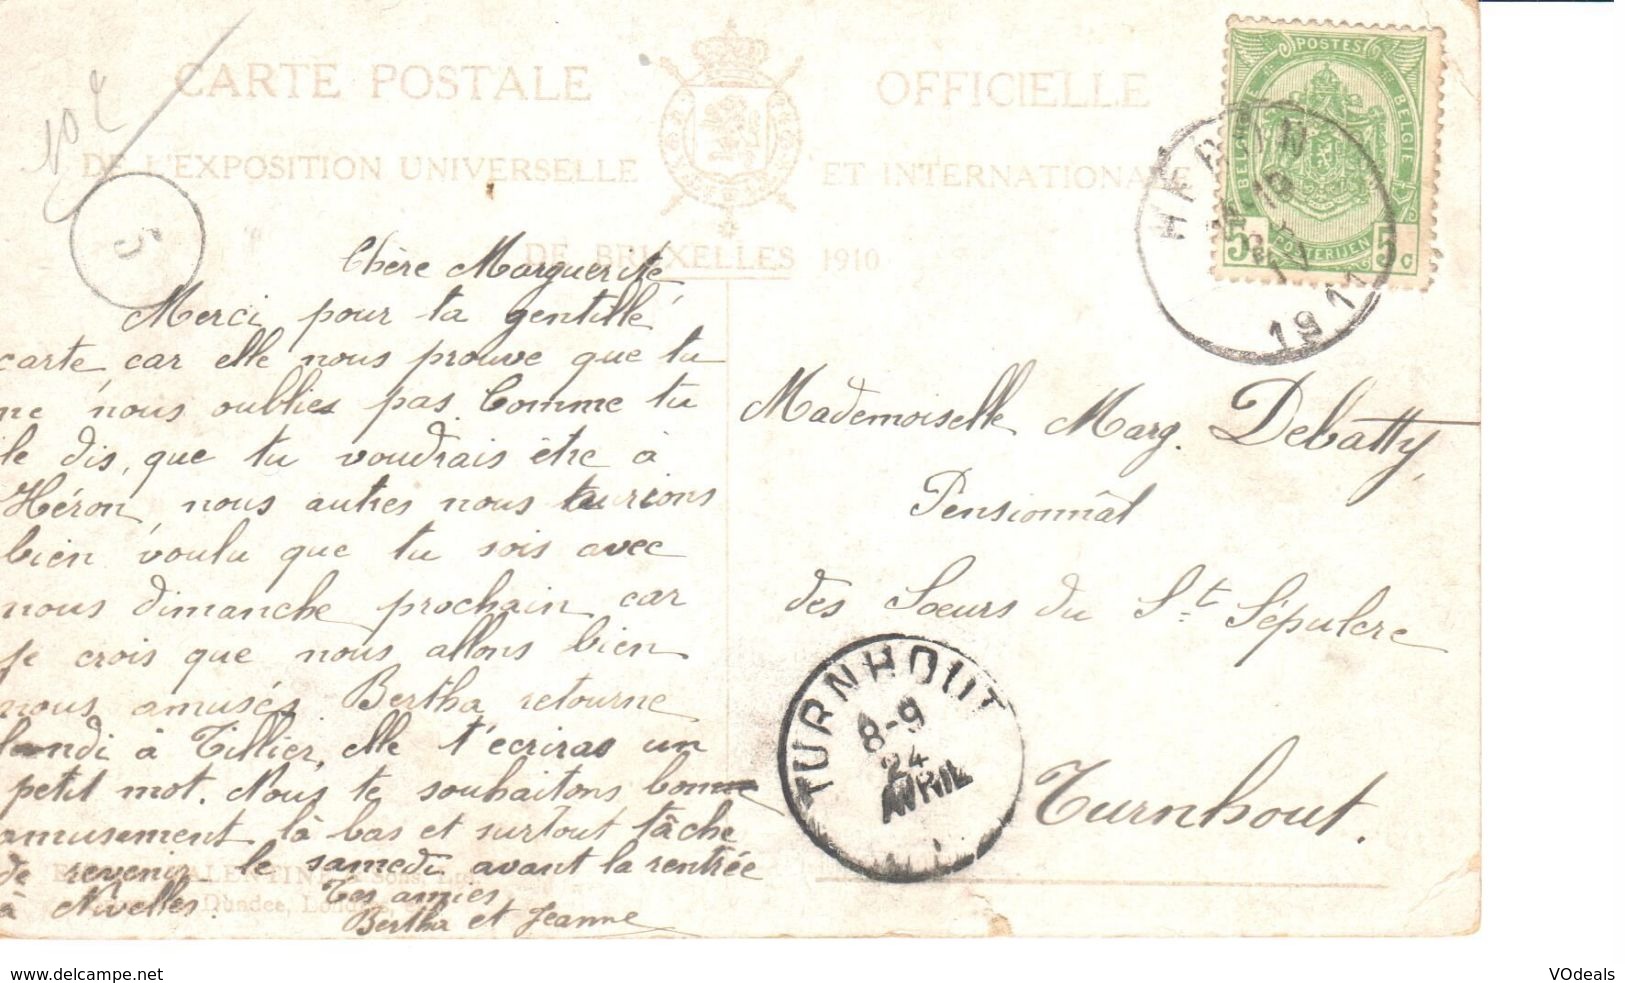 CARTE POSTALE OFFICIELLE
DE L'EXPOSITION UNIVERSELLE ET INTERNATIONALE
DE BRUXELLES 1910
10 €
5
POSTES
BELGIQUE BELGIË
POSTERIJEN
5c 5c
1911
Chère Marguerite
Merci pour ta gentille
carte car elle nous prouve que tu
ne nous oublies pas. Comme tu
le dis, que tu voudrais être à
Héron, nous autres nous aurions
bien voulu que tu sois avec
nous dimanche prochain car
je crois que nous allons bien
nous amusés Bertha retourne
lundi à Tillier, elle t'ecriras un
petit mot. Nous te souhaitons bonne
amusement là bas et surtout tâche
de revenir le samedi avant la rentrée
à Nivelles.
Tes amies
Bertha et Jeanne
Mademoiselle Marg. Debatty,
Pensionnât
des Soeurs du St Sépulcre
Turnhout.
TURNHOUT
8-9
24
AVRIL
VALENTINE & Sons, Ltd
Dundee, London,
www.delcampe.net
VOdeals